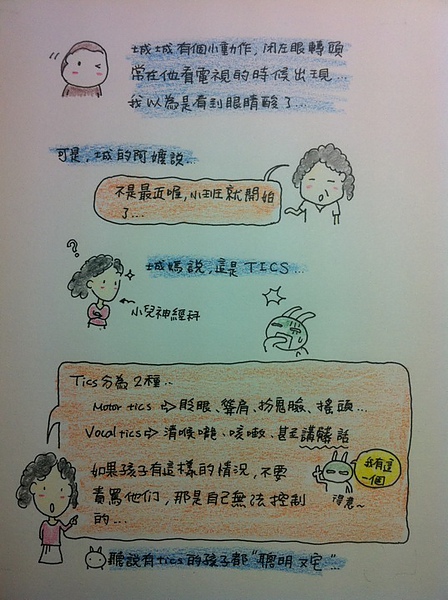 城城有個小動作,閉左眼轉頭
常在他看電視的時候出現...
我以為是看到眼睛酸了...
可是,城的阿嬤說...
不是最近喔,小班就開始
了...
?
城媽說,這是TICS...
小兒神經科
Tics分為2種..
Motor tics ⇨ 眨眼、聳肩、扮鬼臉、搖頭...
Vocal tics ⇨ 清喉嚨、咳嗽、甚至講髒話
如果孩子有這樣的情況,不要
責罵他們,那是自己無法控制
的...
我有這
一個
得意~
聽說有tics的孩子都"聰明ㄨㄜ"...